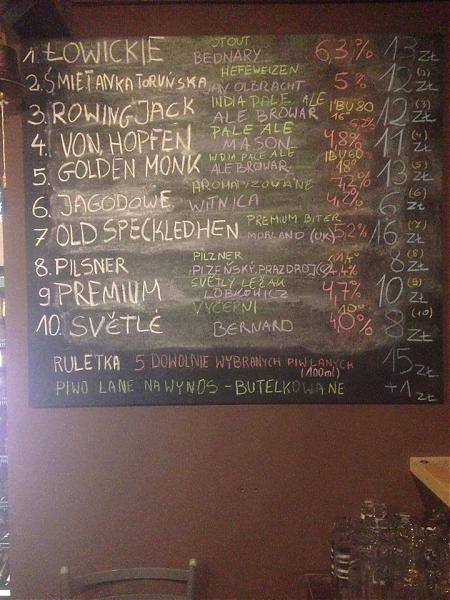 1. ŁOWICKIE STOUT BEDNARY 6,3% 13 ZŁ
2. ŚMIETANKA TORUŃSKA HEFEWEIZEN JAN OLBRACHT 5% 12 ZŁ
3. ROWING JACK INDIA PALE ALE ALE BROWAR IBU 80 16° 6,2% 12 ZŁ (3)
4. VON HOPFEN PALE ALE MASON 4,8% 11 ZŁ (4)
5. GOLDEN MONK INDIA PALE ALE ALE BROWAR IBU 60 18° 7,2% 13 ZŁ (5)
6. JAGODOWE AROMATYZOWANE WITNICA 4,2% 6 ZŁ (6)
7 OLD SPECKLED HEN PREMIUM BITER MORLAND (UK) 5,2% 16 ZŁ (7)
8. PILSNER PILZNER PLZEŃSKÝ PRAZDROJ 4,4% 8 ZŁ (8)
9 PREMIUM SVĚTLÝ LEŽÁK LOBKOWICZ 4,7% 10 ZŁ (9)
10. SVĚTLÉ VÝČEPNÍ BERNARD 10° 4,0% 8 ZŁ (10)
RULETKA 5 DOWOLNIE WYBRANYCH PIW LANYCH (100ml) 15 ZŁ
PIWO LANE NA WYNOS - BUTELKOWANE +1 ZŁ